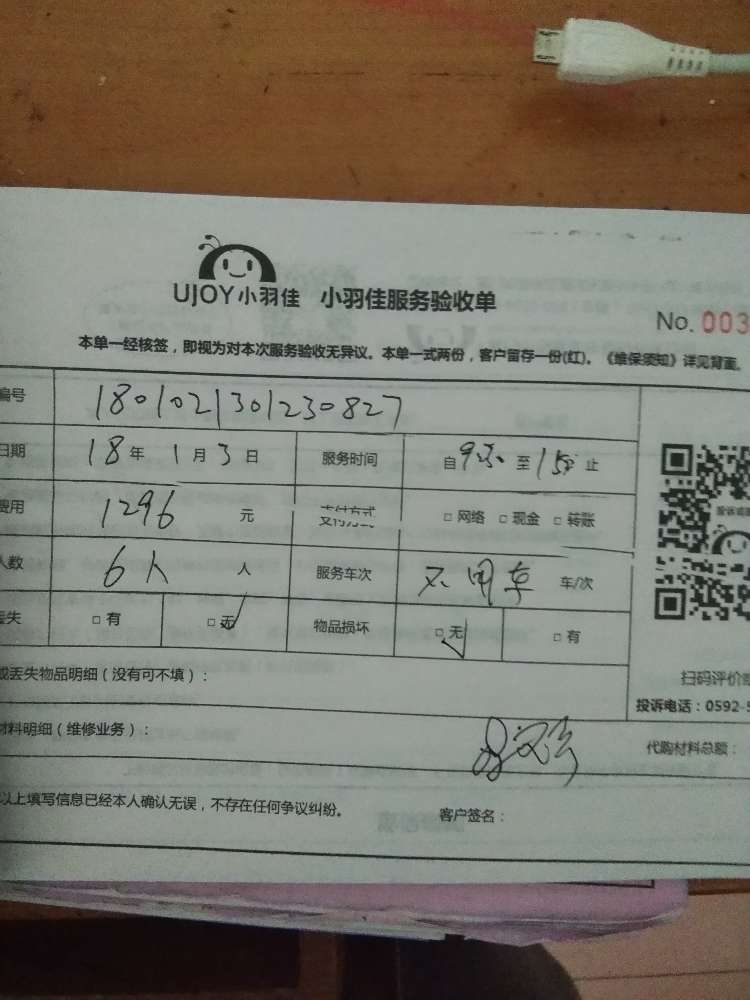 UJOY小羽佳 小羽佳服务验收单
No. 003
本单一经核签，即视为对本次服务验收无异议。本单一式两份，客户留存一份(红)。《维保须知》详见背面。
编号 1801021301230827
日期 18年 1月3日 服务时间 自9:30至 止
费用 1296 元 支付方式 □ 网络 □ 现金 □ 转账
人数 6人 人 服务车次 不用车 车/次
丢失 □ 有 □ 无 物品损坏 □ 无 □ 有
或丢失物品明细（没有可不填）：
扫码评价
投诉电话：0592-5
材料明细（维修业务）：
代购材料总额：
以上填写信息已经本人确认无误，不存在任何争议纠纷。
客户签名：